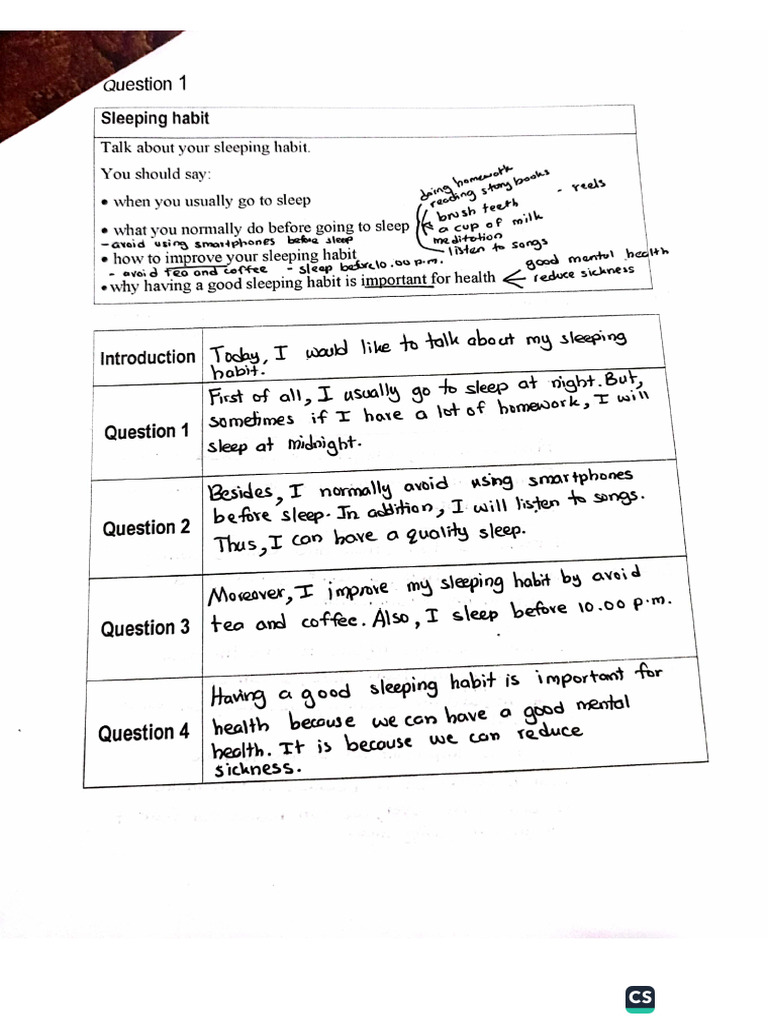 Question 1
Sleeping habit
Talk about your sleeping habit.
You should say:
• when you usually go to sleep
doing homework
reading storybooks
- reels
brush teeth
• what you normally do before going to sleep
a cup of milk
meditation
listen to songs
- avoid using smartphones before sleep
• how to improve your sleeping habit
- avoid tea and coffee - sleep before 10.00 p.m.
• why having a good sleeping habit is important for health
good mental health
reduce sickness
Introduction
Today, I would like to talk about my sleeping
habit.
Question 1
First of all, I usually go to sleep at night. But,
sometimes if I have a lot of homework, I will
sleep at midnight.
Question 2
Besides, I normally avoid using smartphones
before sleep. In addition, I will listen to songs.
Thus, I can have a quality sleep.
Question 3
Moreover, I improve my sleeping habit by avoid
tea and coffee. Also, I sleep before 10.00 p.m.
Question 4
Having a good sleeping habit is important for
health because we can have a good mental
health. It is because we can reduce
sickness.
CS